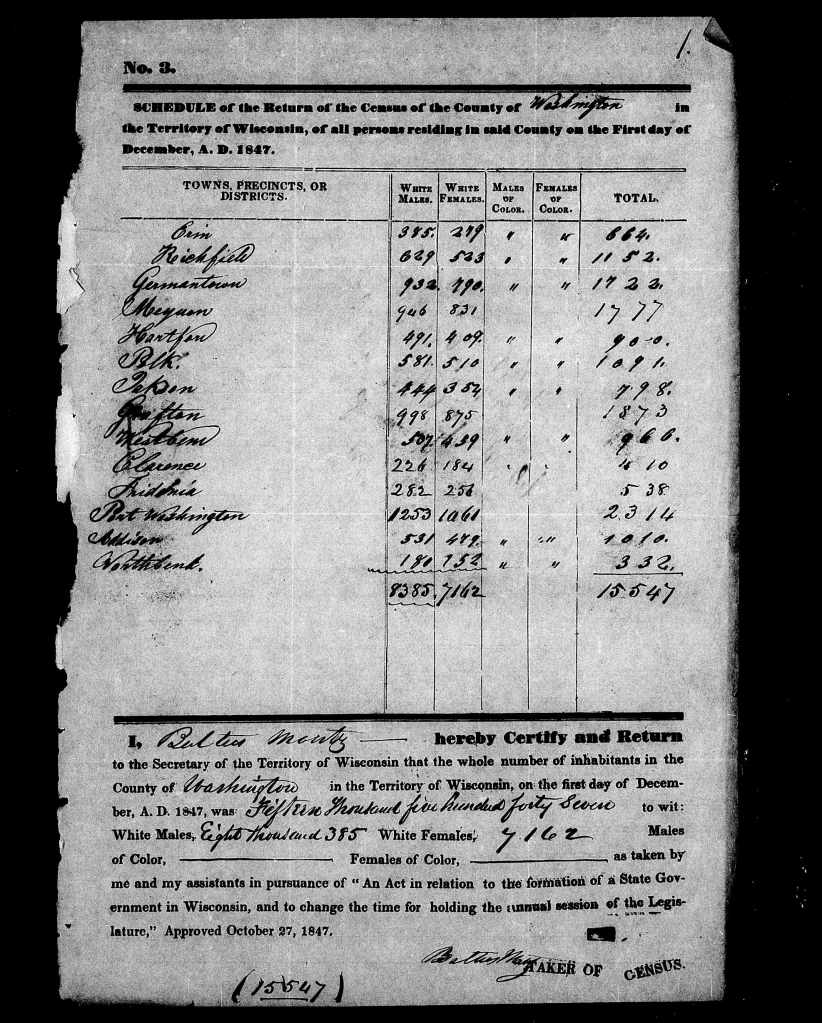 1.
No. 3.
SCHEDULE of the Return of the Census of the County of Washington in
the Territory of Wisconsin, of all persons residing in said County on the First day of
December, A. D. 1847.
TOWNS, PRECINCTS, OR DISTRICTS. WHITE MALES. WHITE FEMALES. MALES OF COLOR. FEMALES OF COLOR. TOTAL.
Erin 385. 279 " " 664.
Richfield 629 523 " " 1152.
Germantown 932. 790. " " 1722.
Mequon 946 831 1777
Hartfor 491. 409. " " 900.
Polk. 581. 510 " " 1091.
444 354 " " 798.
Grafton 998 875 1873
Westbend 507 459 " " 966.
Clarence 226 184 " " 410
Fridonia 282 256 538
Port Washington 1253 1061 2314
Addison 531 479 " " 1010.
Northbend. 180 152 " " 332.
8385. 7162 15547
I, hereby Certify and Return
to the Secretary of the Territory of Wisconsin that the whole number of inhabitants in the
County of Washington in the Territory of Wisconsin, on the first day of Decem-
ber, A. D. 1847, was Fifteen Thousand five hundred forty Seven to wit:
White Males, Eight thousand 385 White Females, 7162 Males
of Color, Females of Color, as taken by
me and my assistants in pursuance of "An Act in relation to the formation of a State Gov-
ernment in Wisconsin, and to change the time for holding the annual session of the Legis-
lature," Approved October 27, 1847.
TAKER OF CENSUS.
(15547)